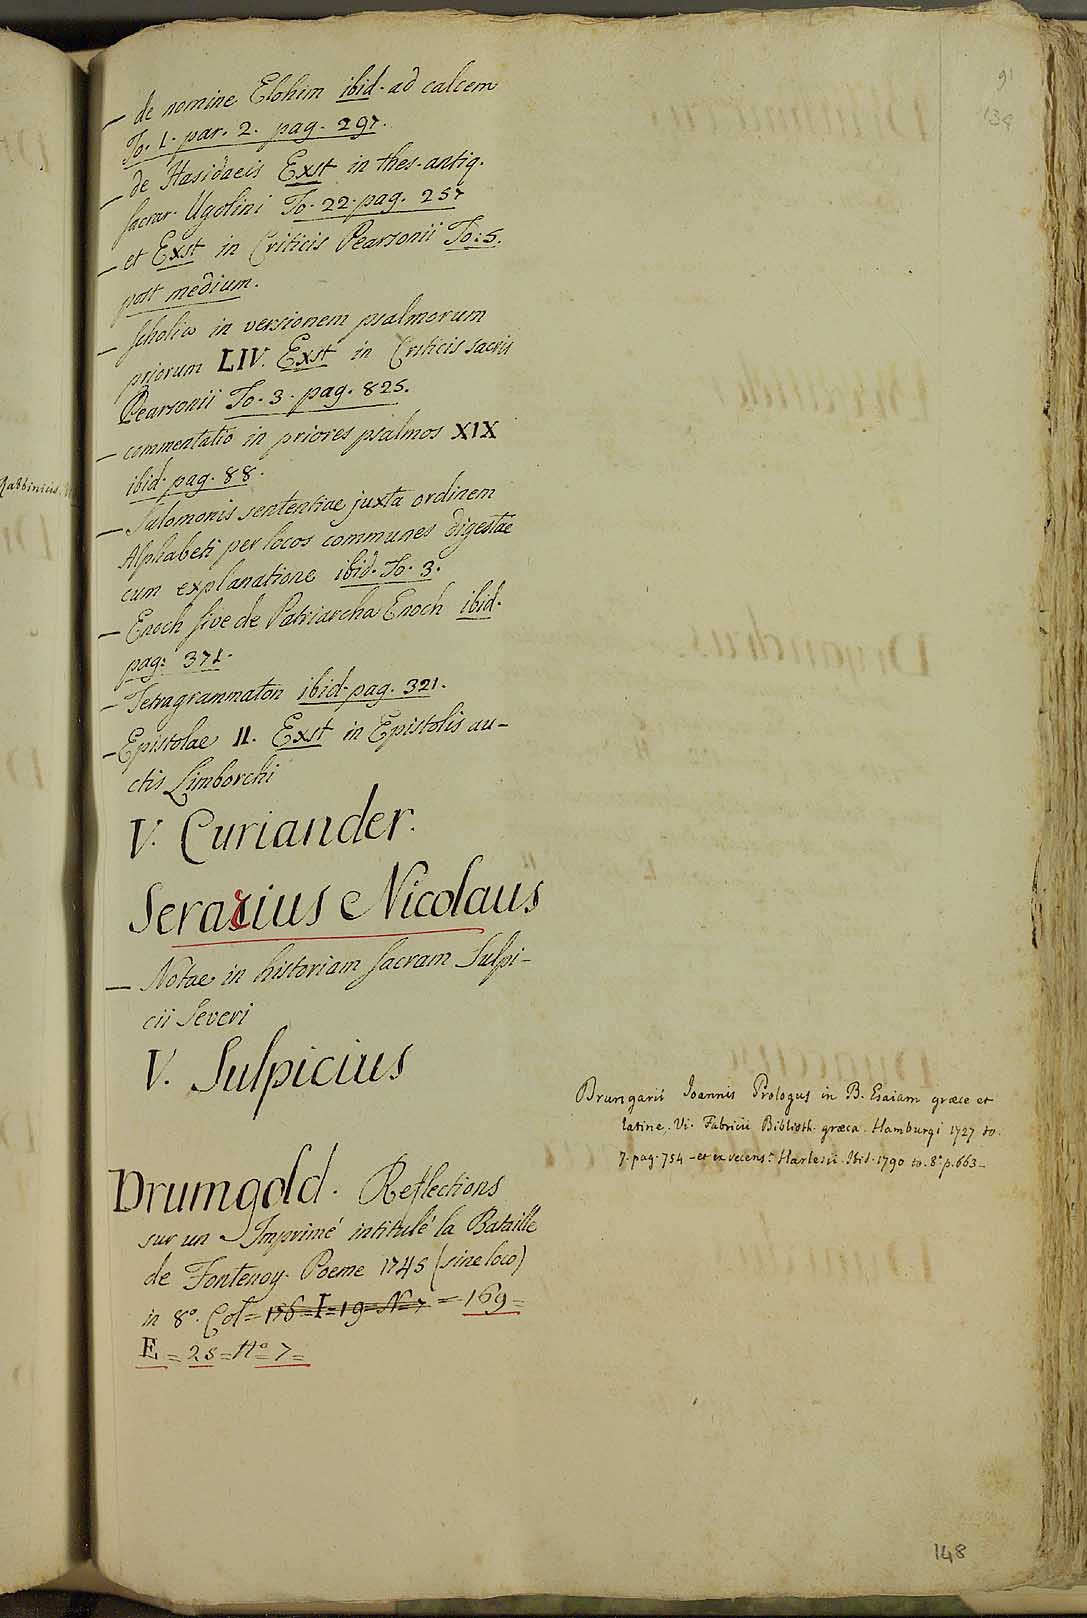 91
134
— de nomine Elohim ibid. ad calcem
To. 1. par. 2. pag. 297.
— de Hasidaeis Exst in thes. antiq.
sacrar. Ugolini To. 22. pag. 257
— et Exst in Criticis Pearsonii To: 5.
post medium.
— scholia in versionem psalmorum
priorum LIV. Exst in Criticis sacris
Pearsonii To. 3. pag. 825.
— commentatio in priores psalmos XIX
ibid. pag. 88.
— Salomonis sententiae juxta ordinem
Alphabeti per locos communes digestae
cum explanatione ibid. To. 3.
— Enoch sive de Patriarcha Enoch ibid.
pag: 371.
— Tetragrammaton ibid. pag. 321.
— Epistolae II. Exst in Epistolis au-
ctis Limborchi
V. Curiander.
Serarius Nicolaus
— Notae in historiam sacram Sulpi-
cii Severi
V. Sulpicius
Brungarii Joannis Prologus in B. Esaiam græce et
latine. Vi. Fabricii Biblioth. græca. Hamburgi 1727 to.
7. pag. 754 - et ex recens.e Harlesii. Ibid. 1790 to. 8.° p. 663 -
Drumgold. Reflections
sur un Imprimé intitulé la Bataille
de Fontenoy. Poeme 1745 (sine loco)
in 8°. Col = 156 = I = 19 = N = 7 = 169 =
E = 25 = N° = 7 =
148